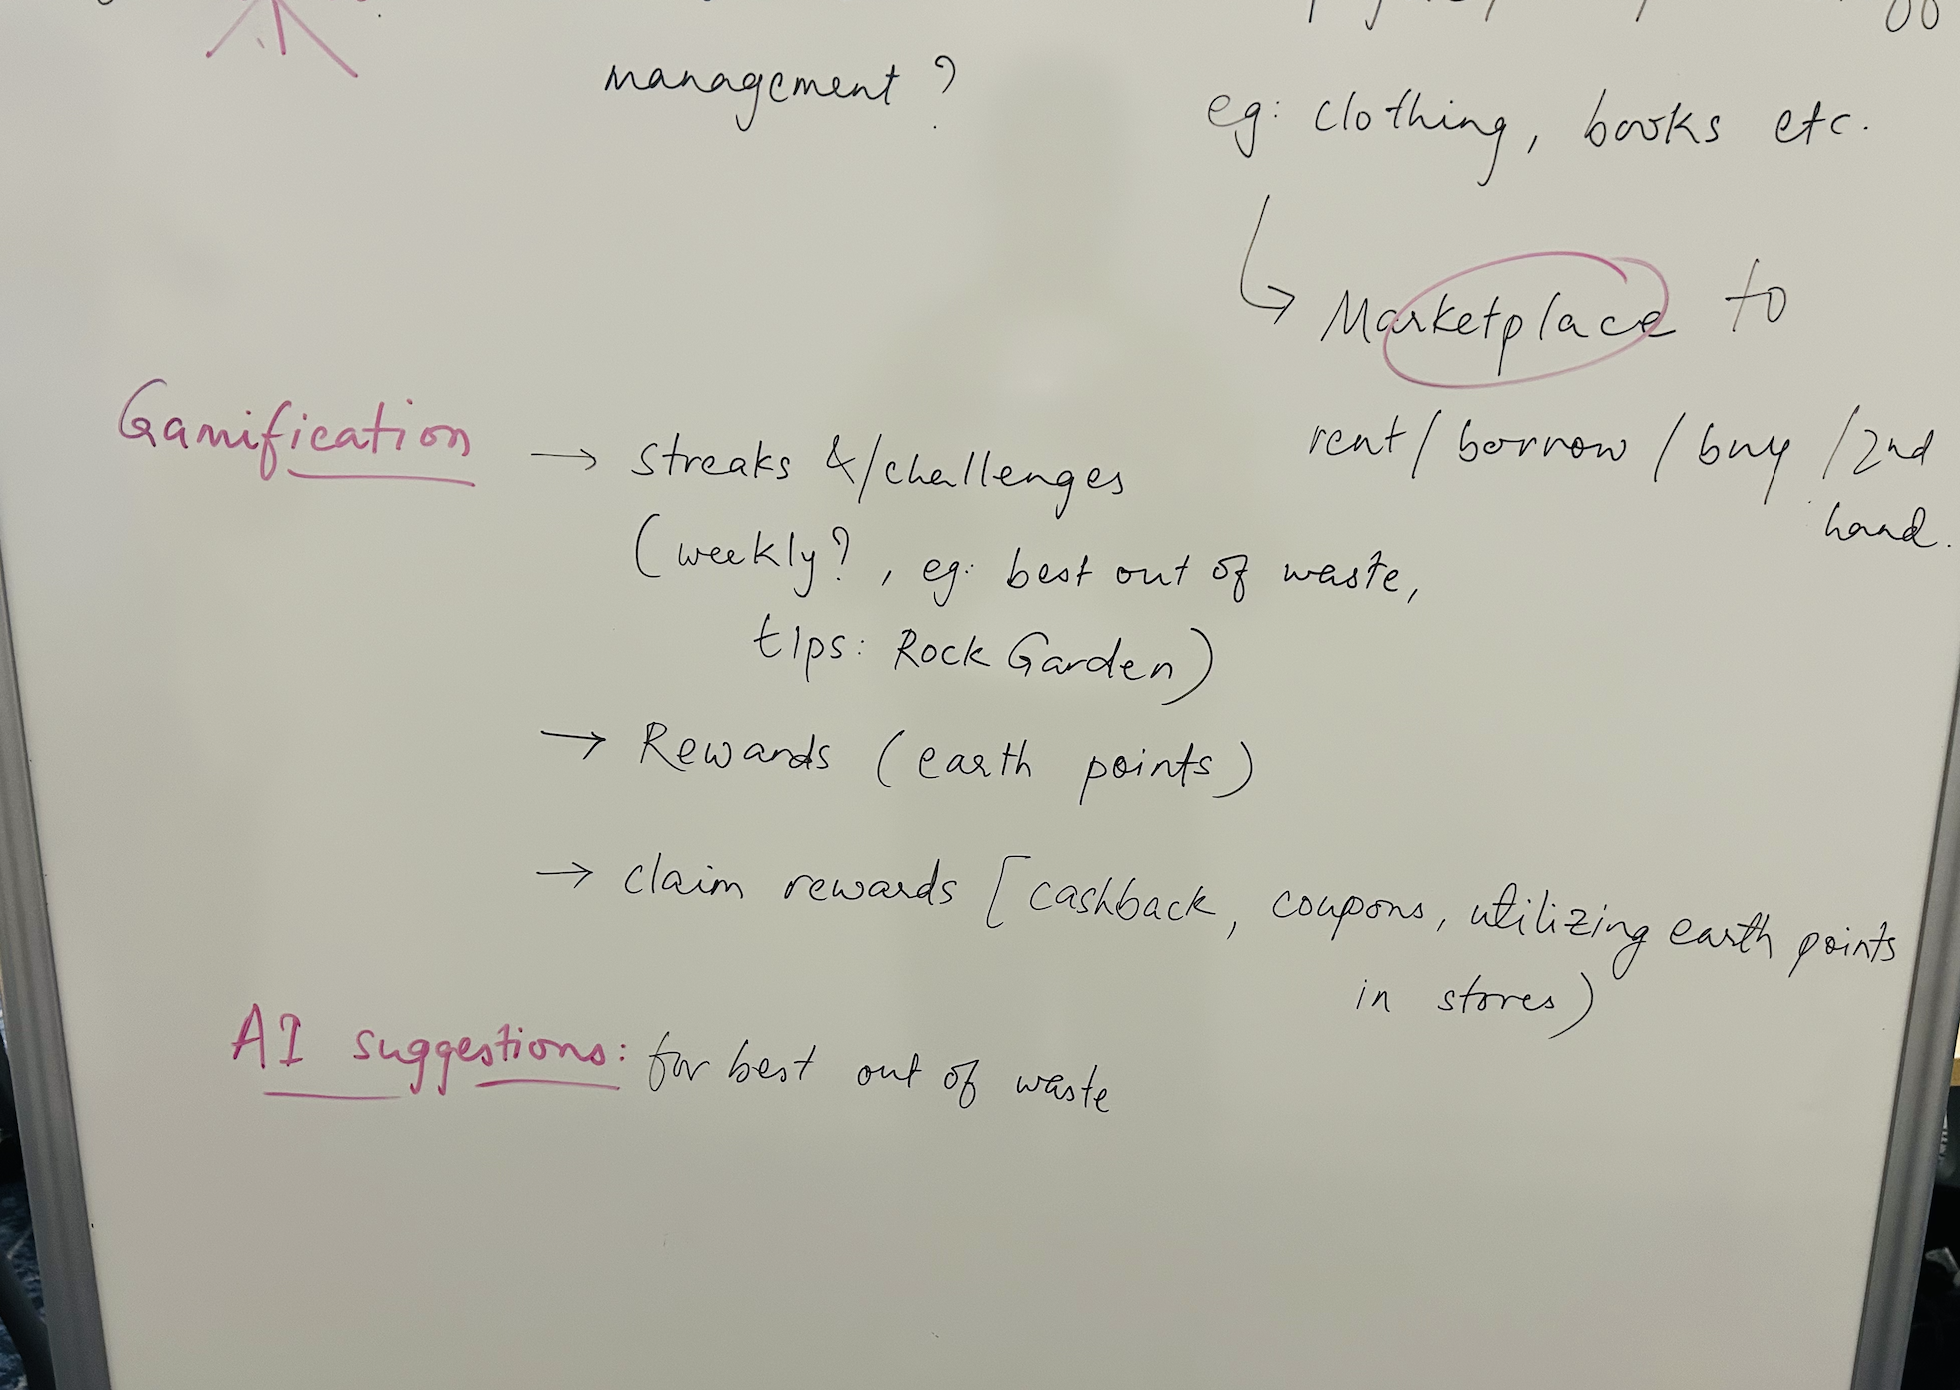 management ?
eg: clothing, books etc.
↳ Marketplace to
rent / borrow / buy / 2nd
hand.
Gamification → streaks &/challenges
(weekly? , eg: best out of waste,
tips: Rock Garden)
→ Rewards (earth points)
→ claim rewards [cashback, coupons, utilizing earth points
in stores)
AI suggestions: for best out of waste